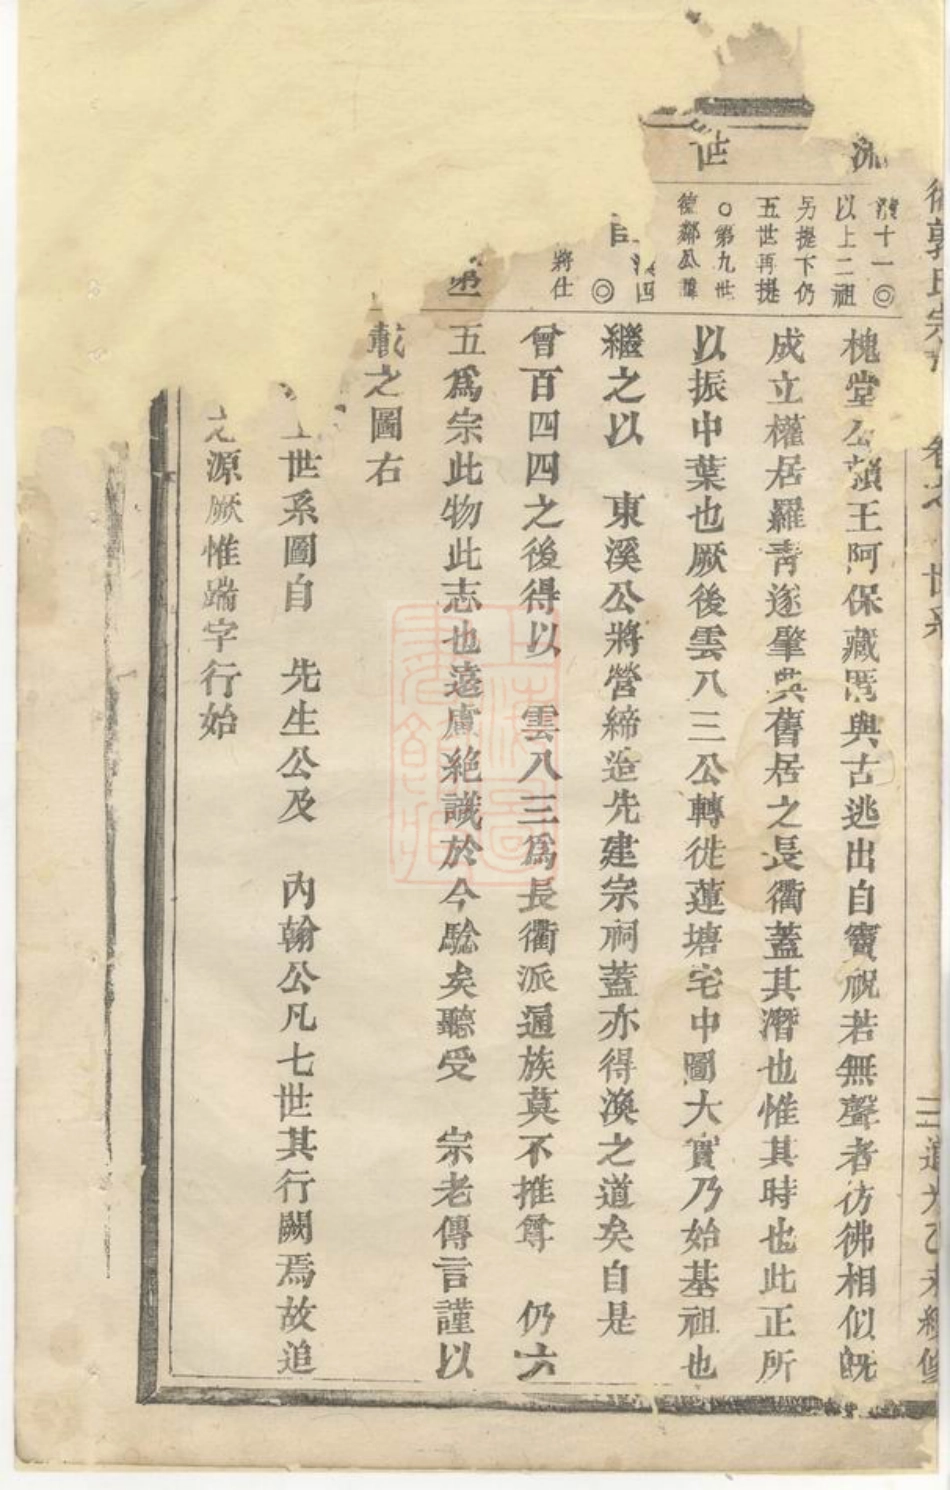 郭氏宗
世系
道光乙未續修
派
世
十一◎
以上二祖
另提下仍
五世再提
○第九世
德鄰公諱
四
◎
將仕
第
槐堂公頴王阿保藏匿與古逃出自竇祝若無聲者彷彿相似旣
成立權居羅靑逐肇典舊居之長衢蓋其潛也惟其時也此正所
以振中葉也厥後雲八三公轉徙蓮塘宅中圖大實乃始基祖也
繼之以　東溪公將營締造先建宗祠蓋亦得渙之道矣自是
曾百四四之後得以　雲八三爲長衢派通族莫不推尊　仍六
五爲宗此物此志也遠慮絶識於今騐矣聽受　宗老傳言謹以
載之圖右
世系圖自　先生公及　內翰公凡七世其行闕焉故追
之源厥惟端字行始